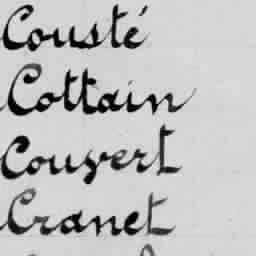 Cousté
Cottain
Couvert
Cranet